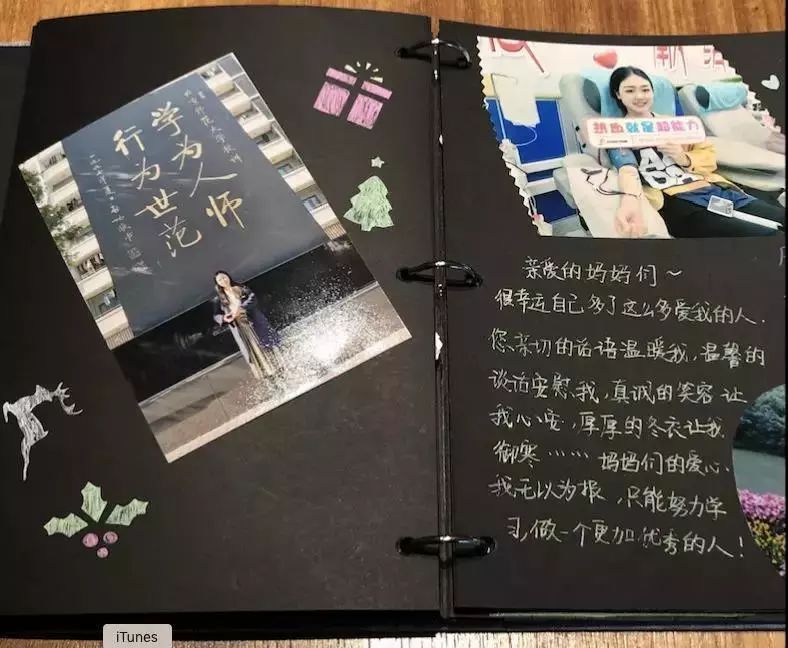 北京师范大学校训
学为人师
行为世范
热血就是超能力
亲爱的妈妈们～
很幸运自己多了这么多爱我的人.
您亲切的话语温暖我，温馨的
谈话安慰我，真诚的笑容让
我心安，厚厚的冬衣让我
御寒……妈妈们的爱心、
我无以为报，只能努力学
习,做一个更加优秀的人！
iTunes